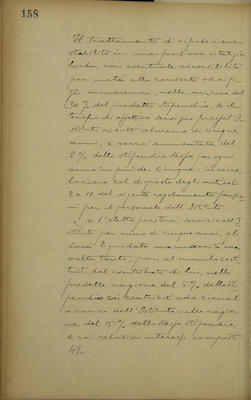 158
Il trattamento di riposo viene
stabilito in una pensione vitalizia
con eventuale riversibilità
per metà alla consorte ed ai fi-
gli minorenni, nella misura del
30% del predetto stipendio, se il
tempo di effettivo servizio presso l'I-
stituto risulti almeno di cinque
anni, e verrà aumentata del
2% dello stipendio stesso per ogni
anno in più dei cinque, in corre-
lazione col disposto degli articoli
2 e 11 del vigente regolamento pensio-
ni per il personale dell'Istituto.
Se l'eletto presterà servizio all'I-
stituto per meno di cinque anni, gli
sarà liquidata una indennità una
volta tanto, pari al cumulo costi-
tuito dal contributo di lui, nella
predetta ragione del 5% dello sti-
pendio e dal contributo addizionale
a carico dell'Istituto nella ragio-
ne del 15% dello stesso stipendio,
e coi relativi interessi composti
4%.